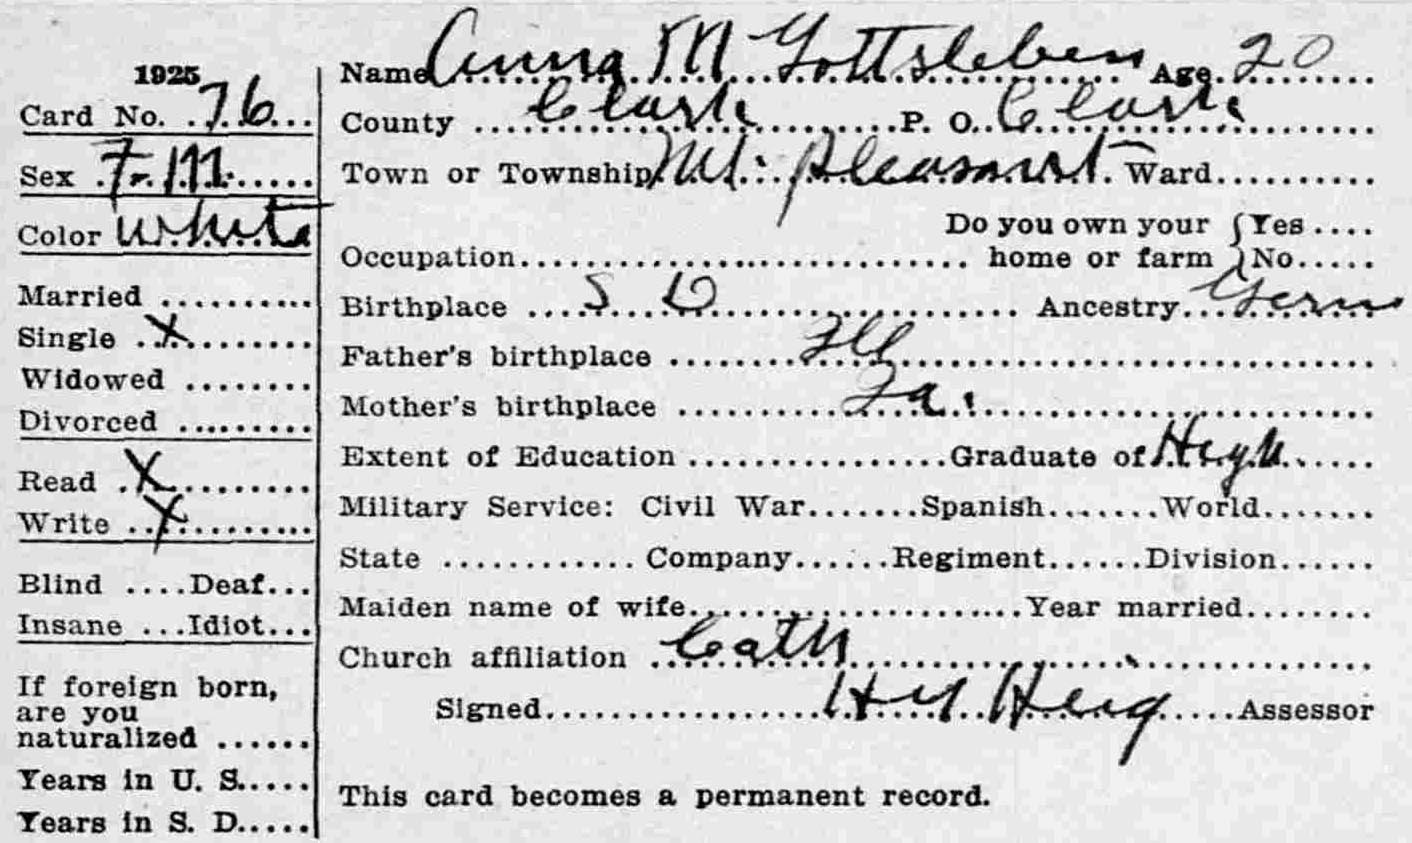 1925
Card No. 76
Sex F-M
Color White
Married
Single X
Widowed
Divorced
Read X
Write X
Blind Deaf
Insane Idiot
If foreign born,
are you
naturalized
Years in U. S.
Years in S. D.
Name Anna M Gottsleben Age 20
County Clark P. O. Clark
Town or Township Mt. Pleasant Ward
Do you own your Yes
Occupation home or farm No
Birthplace S D Ancestry Germ
Father's birthplace Ill
Mother's birthplace Ia.
Extent of Education Graduate of High
Military Service: Civil War Spanish World
State Company Regiment Division
Maiden name of wife Year married
Church affiliation Cath
Signed Assessor
This card becomes a permanent record.